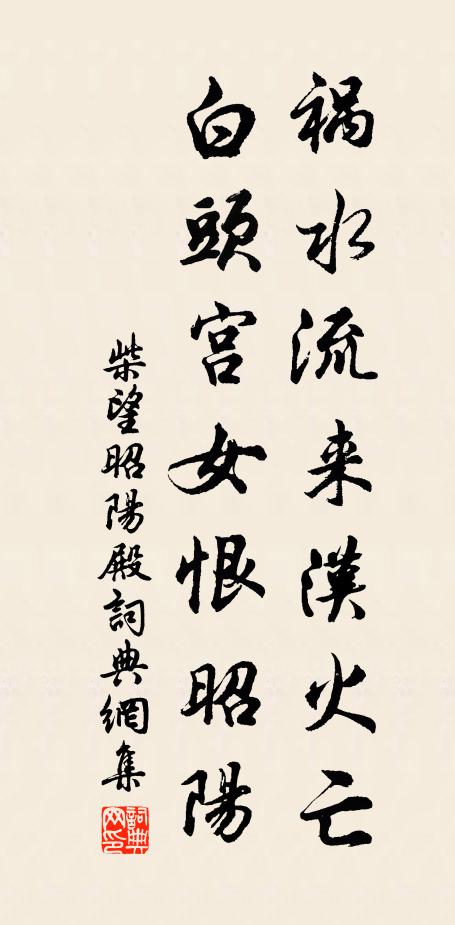 祸水流来漢火亡
白頭宫女恨昭陽
柴望昭陽殿詞典網集
詞典網印